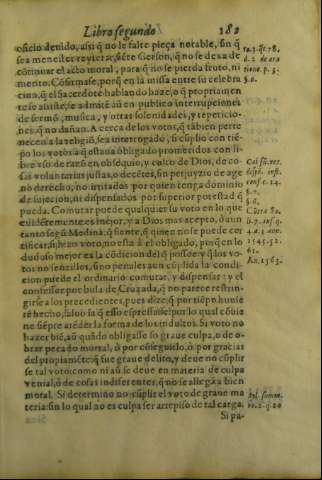 Libro segundo 182
oficio deuido, assi q̃ no le falte pieça notable, sin q̃
sea menester reyterar, siẽte Gerson, q̃ no se dexa de
cõtinuar el acto moral, para q̃ no se pierda fruto, ni
merito. Cõfirmase, porq̃ en la missa entre su celebra
ciõ, q̃ el Sacerdote hablando haze, o q̃ propriamen
te se assiste, se admitẽ aũ en publico interrupciones
de sermõ, musica, y otras solenidades, y repeticio-
nes, q̃ no dañan. A cerca de los votos, q̃ tãbien perte
necen a la religiõ, sea interrogado, si cũplio con tiẽ-
po los votos a q̃ estaua obligado prometidos con li-
bre vso de razõ en obsequio, y culto de Dios, de co-
sas voluntarias justas, o decẽtes, sin perjuyzio de age
no derecho, no irritados por quien tenga dominio
de sujecion, ni dispensados por superior potestad q̃
pueda. Comutar puede qualquier su voto en lo que
euidẽtemente es mejor, y a Dios mas acepto, o aun
tanto segũ Medina; q̃ siente, q̃ quien no se puede cer
tificar, si hizo voto, no esta a el obligado, porq̃ en lo
dudoso mejor es la cõdicion del q̃ possee: y q̃ los vo-
tos no sencillos, sino penales aun cũplida la condi-
cion puede el ordinario comutar, y dispensar: y el
confessor por bula de Cruzada, q̃ no parece restrin-
girse a los precedentes, pues dize, q̃ por tiẽpo huuie
rẽ hecho, saluo si q̃ esso espressasse: por lo qual cõuie
ne siẽpre atẽder la forma de los indultos. Si voto no
hazer biẽ, aũ quãdo obligasse so graue culpa, o de o-
brar pecado mortal, o por cõseguirlo, o por gracias
del propiamẽte: q̃ fue graue delito, y deue no cũplir
se tal voto: como ni aũ se deue en materia de culpa
venial, o de cosas indiferentes, q̃ no se allegã a bien
moral. Si determino no cũplir el voto de graue ma
teria: sin lo qual no es culpa ser arrepiso de tal carga.
Si pa-